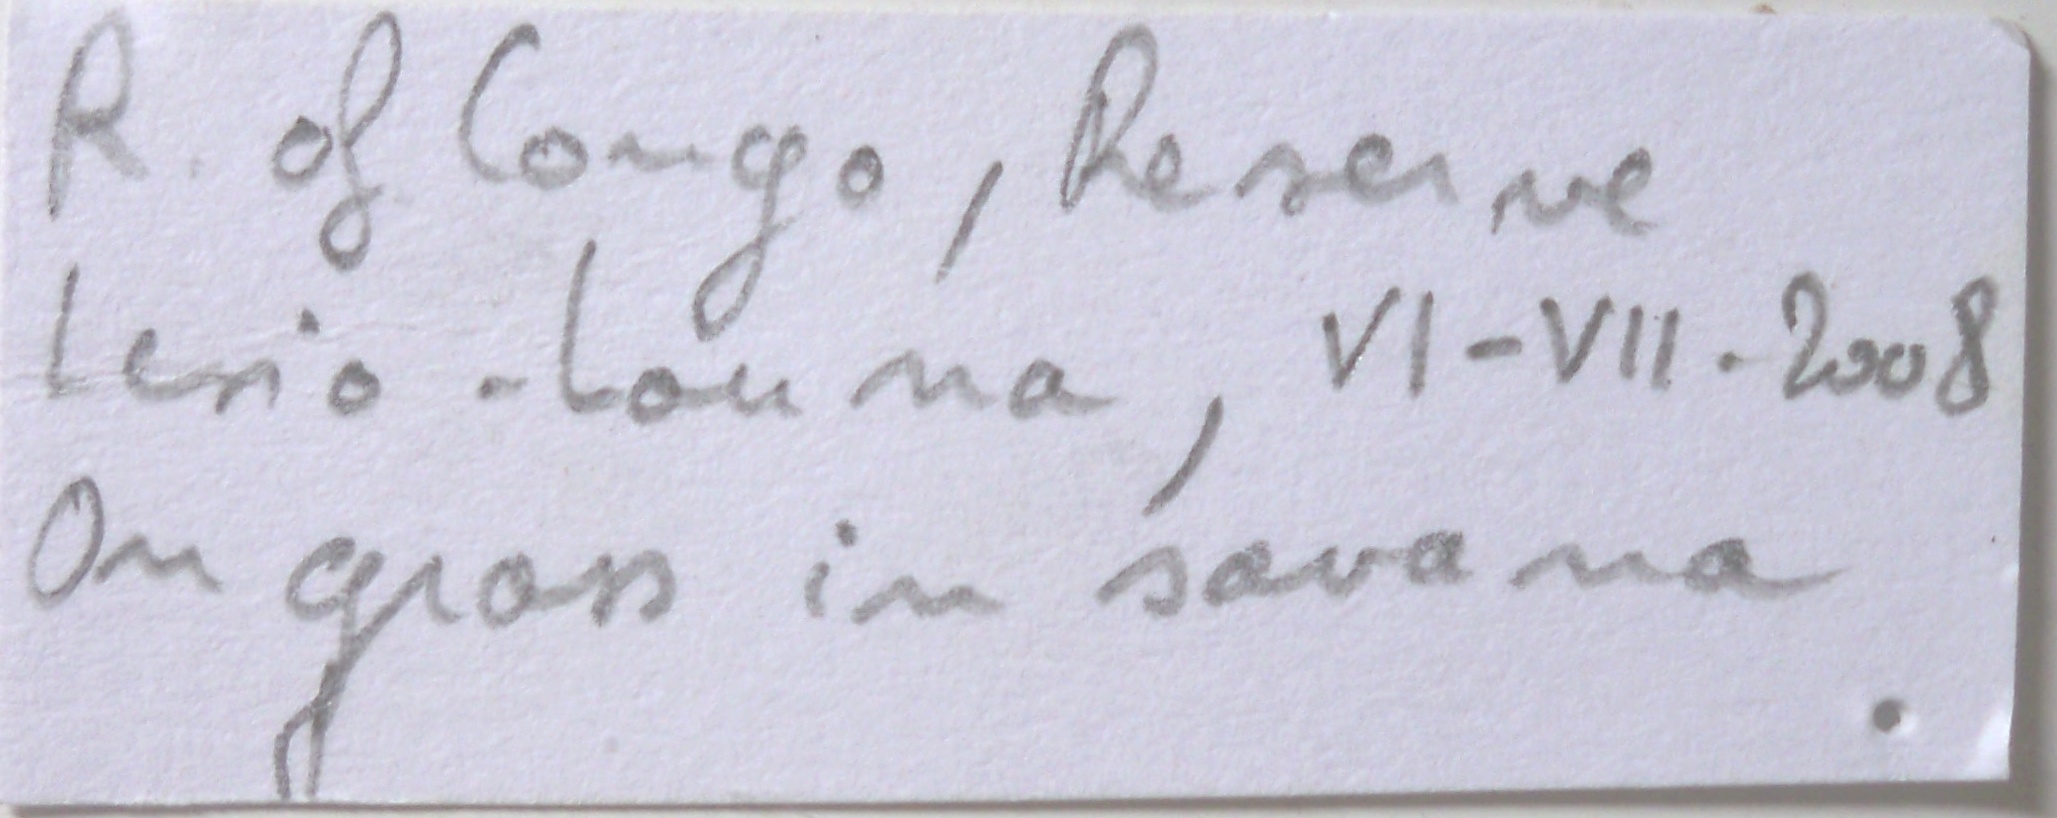 R. of Congo, Reserve
Lesio-Louna, VI-VII-2008
On grass in savana